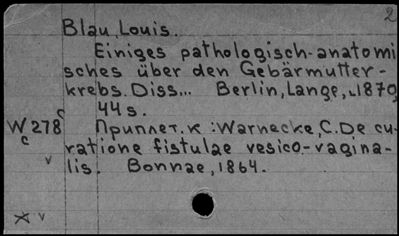 2
Blau, Louis.
Einiges pathologisch-anatomi
sches über den Gebärmutter-
krebs. Diss... Berlin, Lange, 1870
44 s.
W 278 Приплет. к : Warnecke, C. De cu-
c
ratione fistulae vesico-vagina-
v
lis. Bonnae, 1864.
v